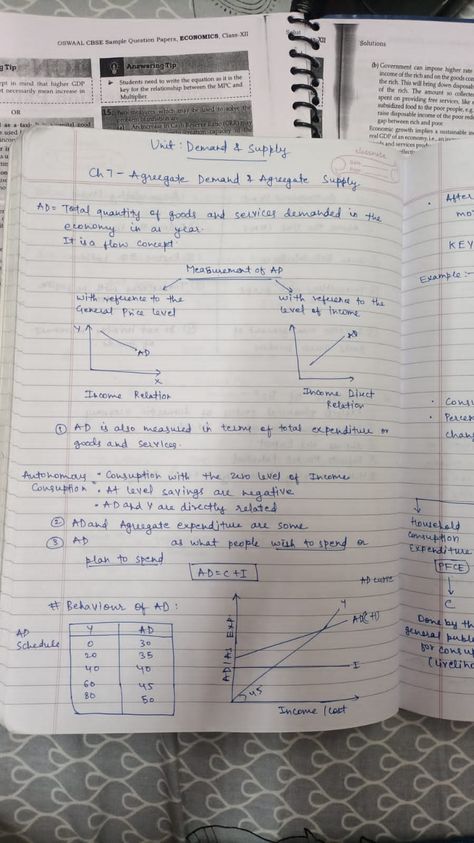 OSWAAL CBSE Sample Question Papers, ECONOMICS, Class-XII
g Tip
Answering Tip
ept in mind that higher GDP
t necessarily mean increase in
Students need to write the equation as it is the
key for the relationship between the MPC and
Multiplier.
OR
Solutions
(b) Government can impose higher rate
income of the rich and on the goods
the rich. This will bring down
of the rich. The amount so collected
spent on providing free services, like
subsidized food to the poor people, e.g.
raise disposable income of the poor
gap between rich and poor.
Economic growth implies a sustained
real GDP of an economy, i.e., an
classmate
Date
Page
Unit : Demand & Supply
Ch 7 - Agreegate Demand & Agreegate Supply
AD = Total quantity of goods and services demanded in the
economy in as year.
It is a flow concept.
Measurement of AD
with reference to the
General Price level
with reference to the
level of income
Y
AD
X
AD
Income Relation
Income Dirct
Relation
① AD is also measured in terms of total expenditure or
goods and services.
Autonomous • Consuption with the zero level of Income
Consuption • At level savings are negative
• AD and Y are directly related
② AD and Agreegate expenditure are some
③ AD as what people wish to spend or
plan to spend
AD = C + I
# Behaviour of AD :
AD
Schedule
Y AD
0 30
20 35
40 40
60 45
80 50
AD curve
EXP
Y
AD(C+I)
I
45
Income / Cost
After
mo
KEY
Example :-
Consu
Percen
chan
Household
Consuption
Expenditure
PFCE
C
Done by th
general publ
for consu
(Liveliho